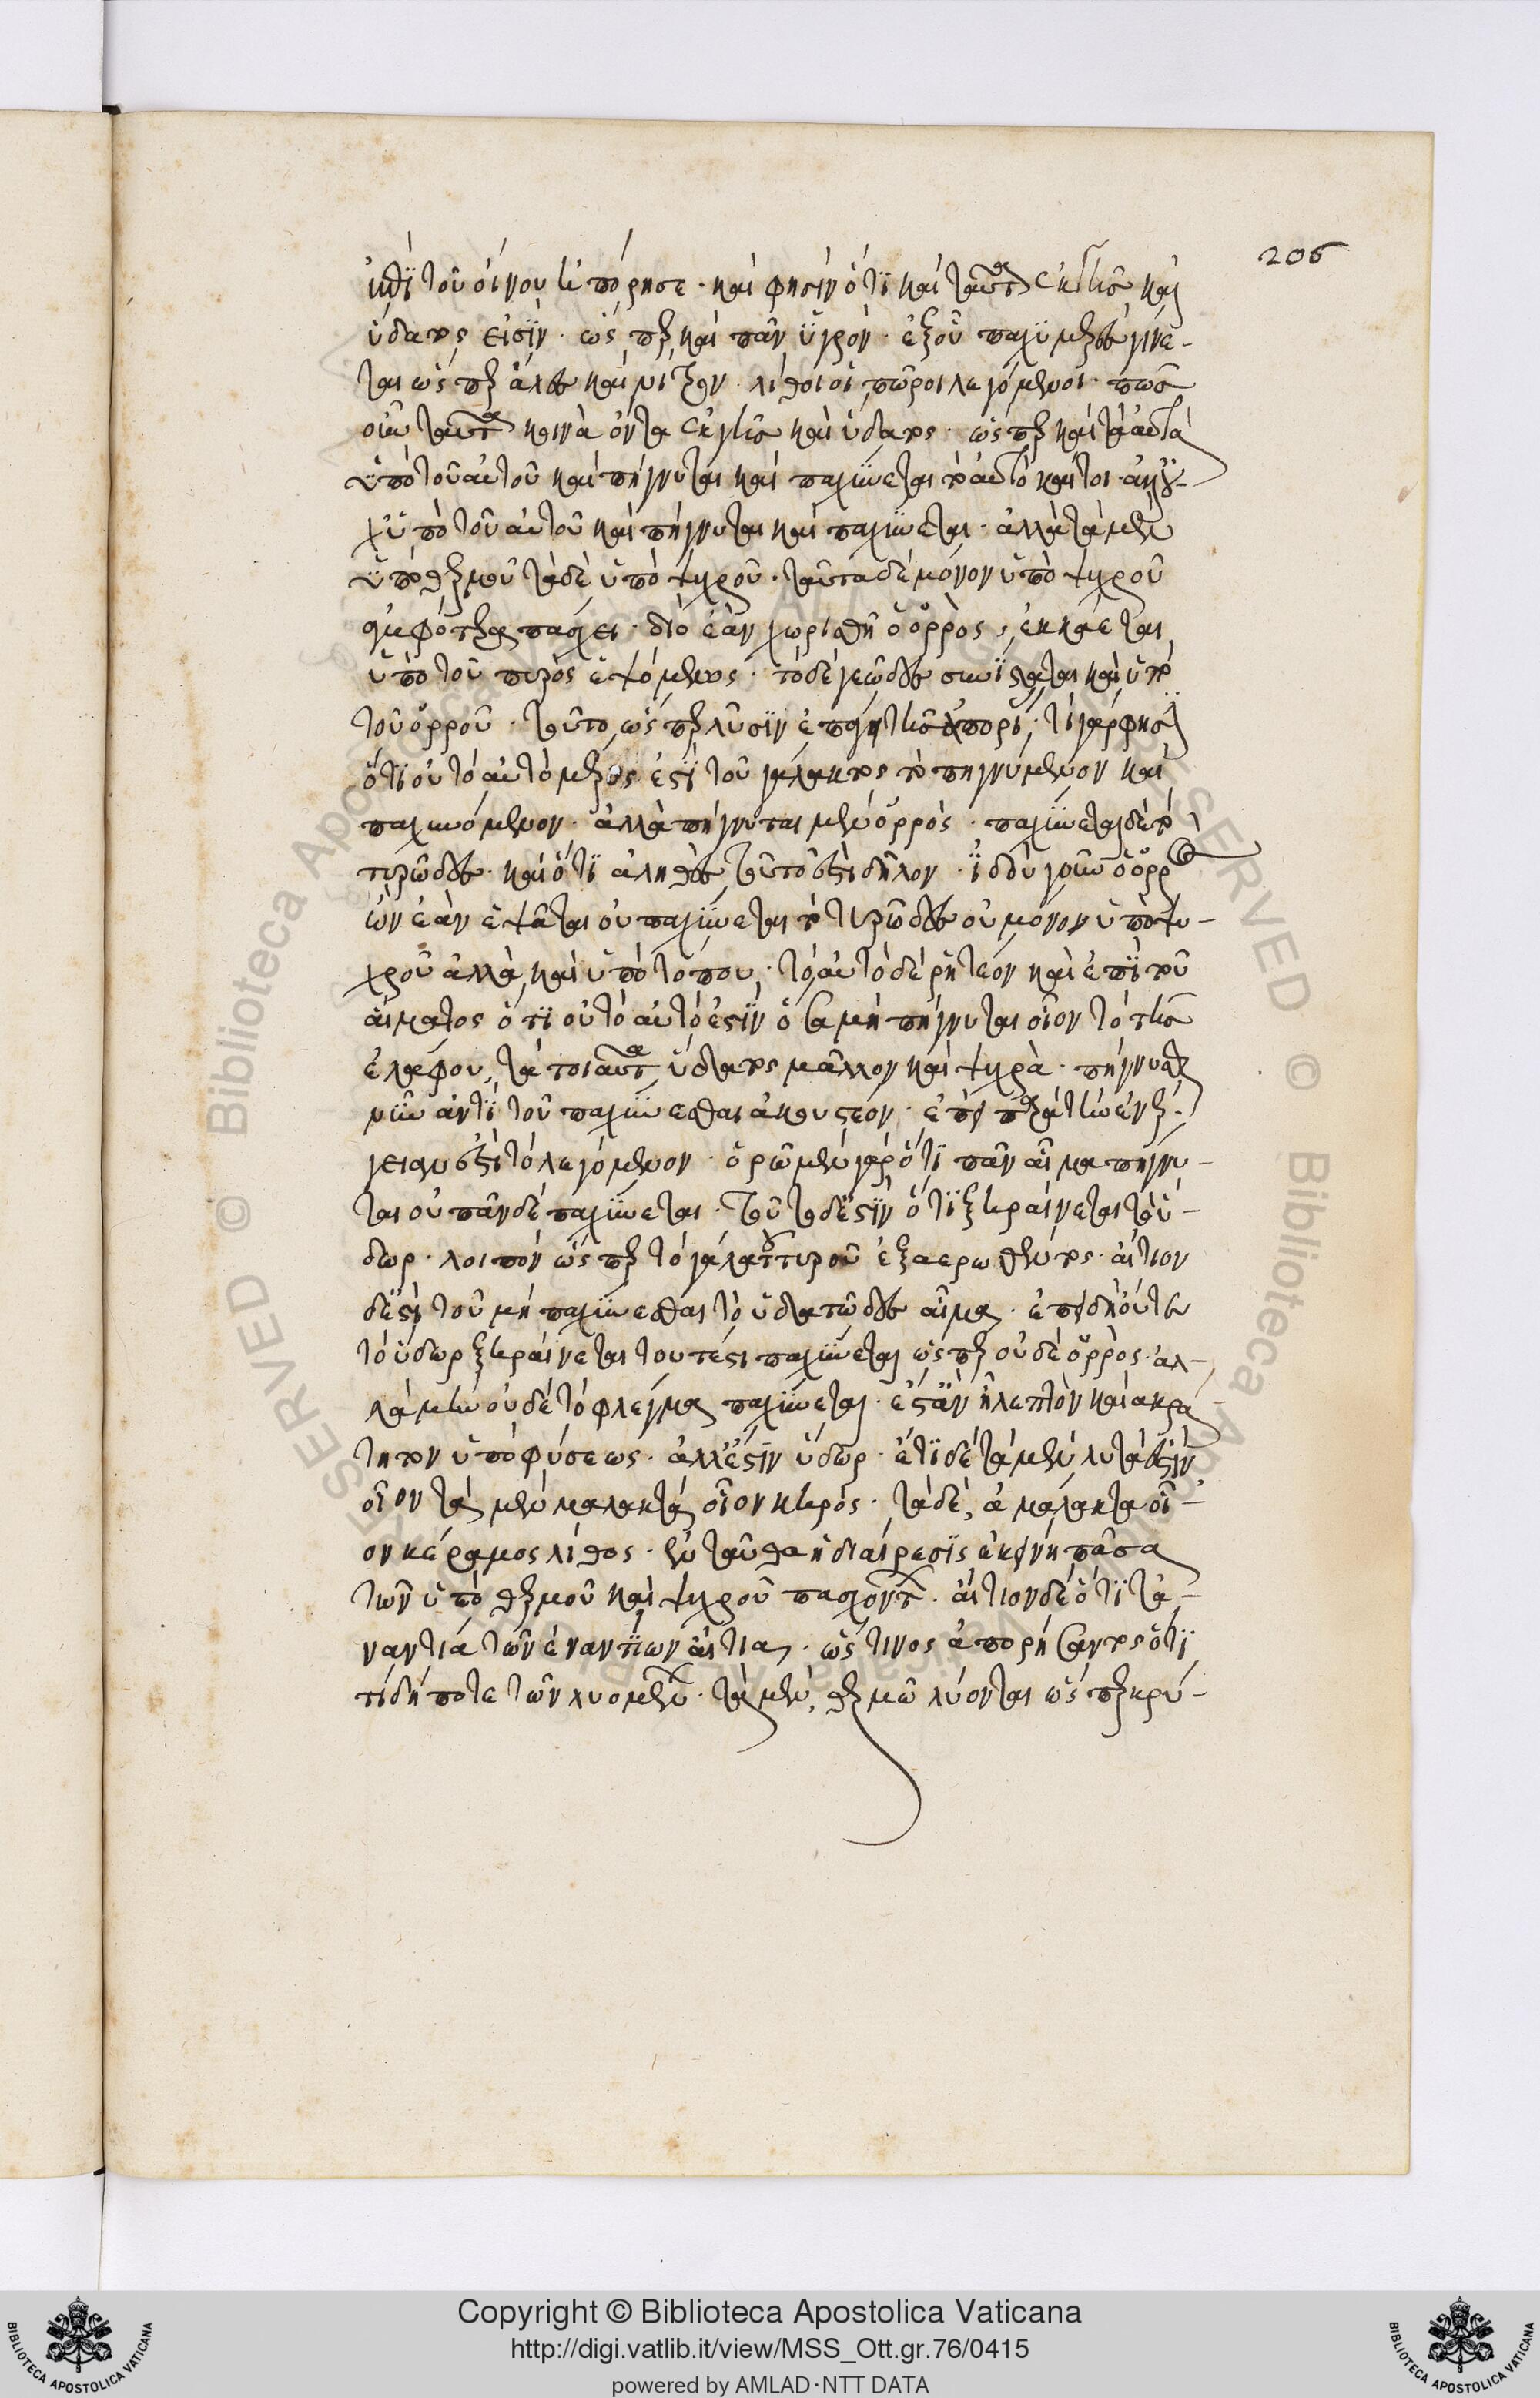 206
τοῦ οἴνου ἠπόρησε· καὶ φησὶν ὅτι καὶ ταῦτα ἐκ γῆς καὶ
ὕδατος εἰσίν· ὥσπερ καὶ πᾶν ὑγρόν· ἐξ οὗ παχυμερὲς γίνε-
ται ὥσπερ ἅλες καὶ λίθοι οἱ πῶροι λεγόμενοι· πῶς
οὖν ταῦτα κοινὰ ὄντα ἐκ γῆς καὶ ὕδατος· ὥσπερ καὶ τὰ αὐτὰ
ὑπὸ τοῦ αὐτοῦ καὶ πήγνυται καὶ παχύνεται τὸ αὐτὸ καίτοι
ὑπὸ τοῦ αὐτοῦ καὶ πήγνυται καὶ παχύνεται· ἀλλὰ τὰ μὲν
ὑπὸ θερμοῦ τὰ δὲ ὑπὸ ψυχροῦ· ταῦτα δὲ μόνον ὑπὸ ψυχροῦ
ἀμφότερα πάσχει· διὸ ἐὰν χωρισθῆ ὁ ὀρρὸς, ἐκκάεται
ὑπὸ τοῦ πυρὸς ἑψόμενος· τὸ δὲ γεῶδες συνίσταται καὶ ὑπὸ
τοῦ ὀρροῦ· τοῦτο ὥσπερ λύσιν ἐπάγει τῆς ἀπορί· τί γάρ φησι
ὅτι οὐ τὸ αὐτὸ μέρος ἐστὶ τοῦ γάλακτος τὸ πηγνύμενον καὶ
παχυνόμενον· ἀλλὰ πήγνυται μὲν ὀρρὸς· παχύνεται δὲ τὸ
τυρῶδες· καὶ ὅτι ἀληθὲς τοῦτό ἐστι δῆλον· ἰδοὺ γοῦν ὁ ὀρρὸς
ὢν ἐὰν ἑψᾶται οὐ παχύνεται τὸ τυρῶδες οὐ μόνον ὑπὸ ψυ-
χροῦ ἀλλὰ καὶ ὑπὸ τόπου· τὸ αὐτὸ δὲ ῥητέον καὶ ἐπὶ τοῦ
αἵματος ὅτι οὐ τὸ αὐτό ἐστιν ὅσα μὴ πήγνυται οἷον τὸ τῆς
ἐλάφου, τὰ τοιαῦτα ὕδατος μᾶλλον καὶ ψυχρὰ· πήγνυσθαι
νῦν ἀντὶ τοῦ παχύνεσθαι ἀκουστέον· ἐπεὶ παρὰ τὴν ἐνέρ-
γειαν ἐστὶ τὸ λεγόμενον· ὁρῶμεν γὰρ ὅτι πᾶν αἷμα πήγνυ-
ται οὐ πᾶν δὲ παχύνεται· τοῦτο δέ ἐστιν ὅτι ξηραίνεται τὸ ὕ-
δωρ· λοιπὸν ὥσπερ τὸ γάλα τοῦ τυροῦ ἐξαερωθέντος· αἴτιον
δέ ἐστι τοῦ μὴ παχύνεσθαι τὸ ὑδατῶδες αἷμα· ἐπειδὴ οὔτε
τὸ ὕδωρ ξηραίνεται τουτέστι παχύνεται ὥσπερ οὐδὲ ὀρρὸς· ἀλ-
λὰ μὴν οὐδὲ τὸ φλέγμα παχύνεται· ἔστ' ἂν ᾖ λεπτὸν καὶ ἀκρά
τητον ὑπὸ φύσεως· ἀλλ' ἔστιν ὕδωρ· ἔτι δὲ τὰ μὲν λυτά ἐστιν
οἷον τὰ μὲν μαλακτὰ οἷον κηρὸς· τὰ δὲ, ἀμάλακτα οἷ-
ον κέραμος λίθος· ἐνταῦθα ἡ διαίρεσις ἐκείνη πᾶσα
τῶν ὑπὸ θερμοῦ καὶ ψυχροῦ πασχόντων· αἴτιον δὲ ὅτι τὰ
ναντία τῶν ἐναντίων αἴτια· ὥς τινος ἀπορήσαντος ὅτι
τί δήποτε τῶν λυομένων· τὰ μὲν, θερμῷ λύονται ὥσπερ κρύ-
Copyright © Biblioteca Apostolica Vaticana
http://digi.vatlib.it/view/MSS_Ott.gr.76/0415
powered by AMLAD·NTT DATA